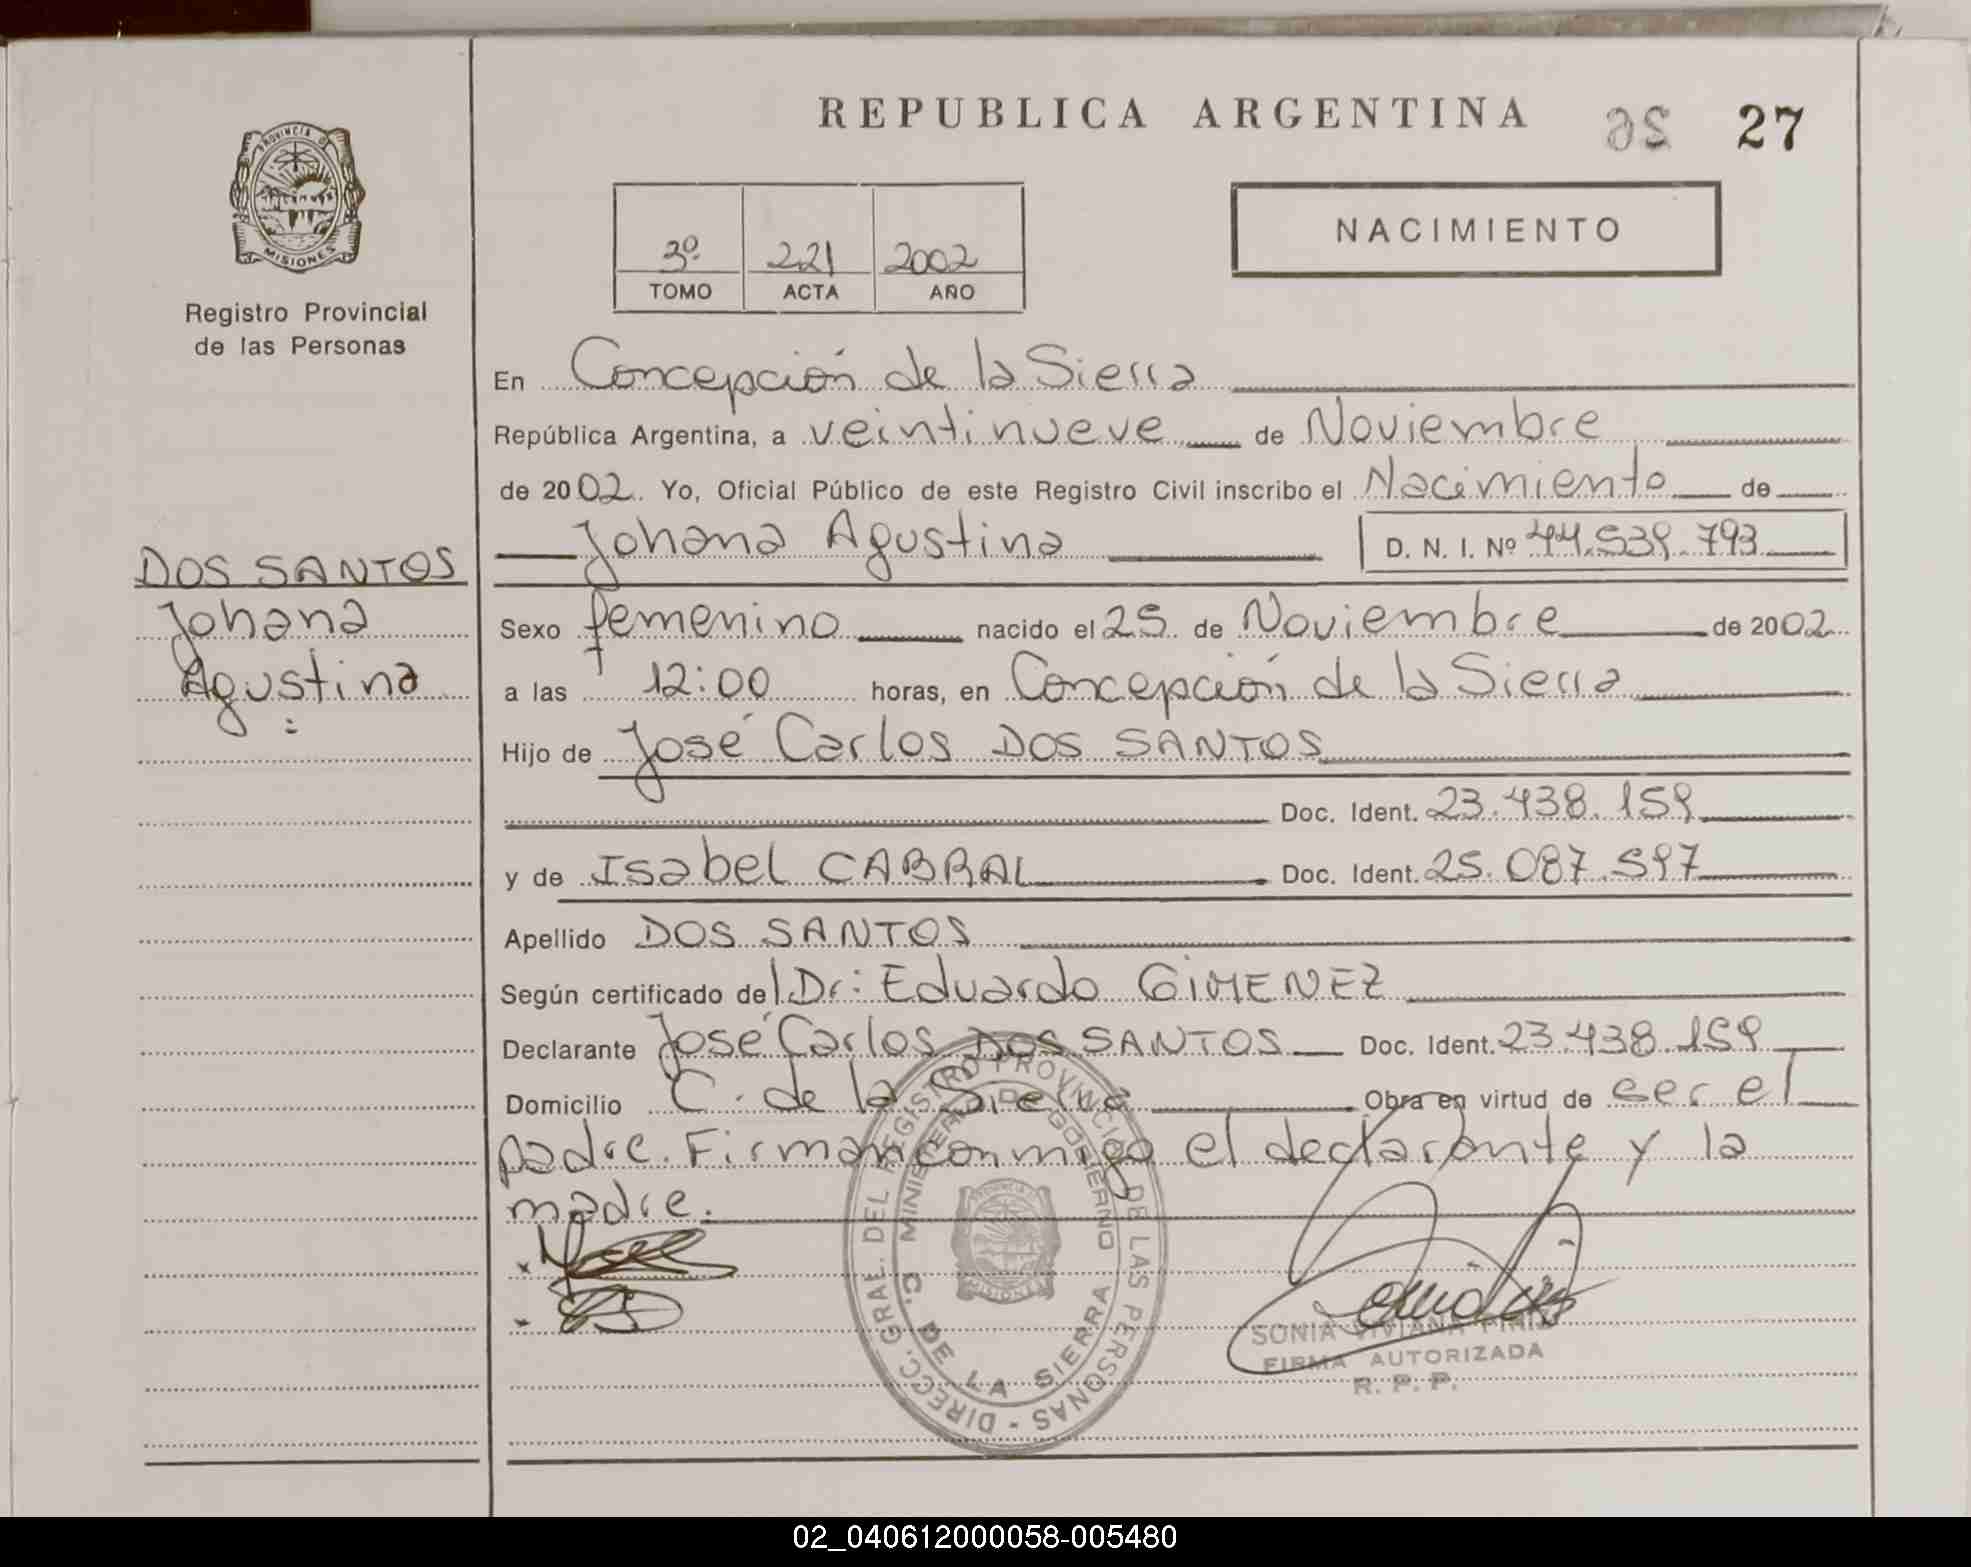 REPUBLICA ARGENTINA
26 27
PROVINCIA D
MISIONES
Registro Provincial
de las Personas
NACIMIENTO
3º 221 2002
TOMO ACTA AÑO
En Concepción de la Sierra
República Argentina, a veintinueve de Noviembre
de 2002. Yo, Oficial Público de este Registro Civil inscribo el Nacimiento de
Johana Agustina D. N. I. Nº 44.539.793
DOS SANTOS
Johana
Agustina
Sexo femenino nacido el 25 de Noviembre de 2002
a las 12:00 horas, en Concepción de la Sierra
Hijo de José Carlos DOS SANTOS
Doc. Ident. 23.438.159
y de Isabel CABRAL Doc. Ident. 25.087.597
Apellido DOS SANTOS
Según certificado del Dr: Eduardo GIMENEZ
Declarante José Carlos DOS SANTOS Doc. Ident. 23.438.159
Domicilio C. de la Sierra Obra en virtud de ser el
padre. Firman conmigo el declarante y la
madre.
DIRECC. GRAL. DEL REGISTRO PROVINCIAL DE LAS PERSONAS -
MINISTERIO DE GOBIERNO
C. DE LA SIERRA
MISIONES
SONIA VIVIANA PIRIZ
FIRMA AUTORIZADA
R. P. P.
02_040612000058-005480